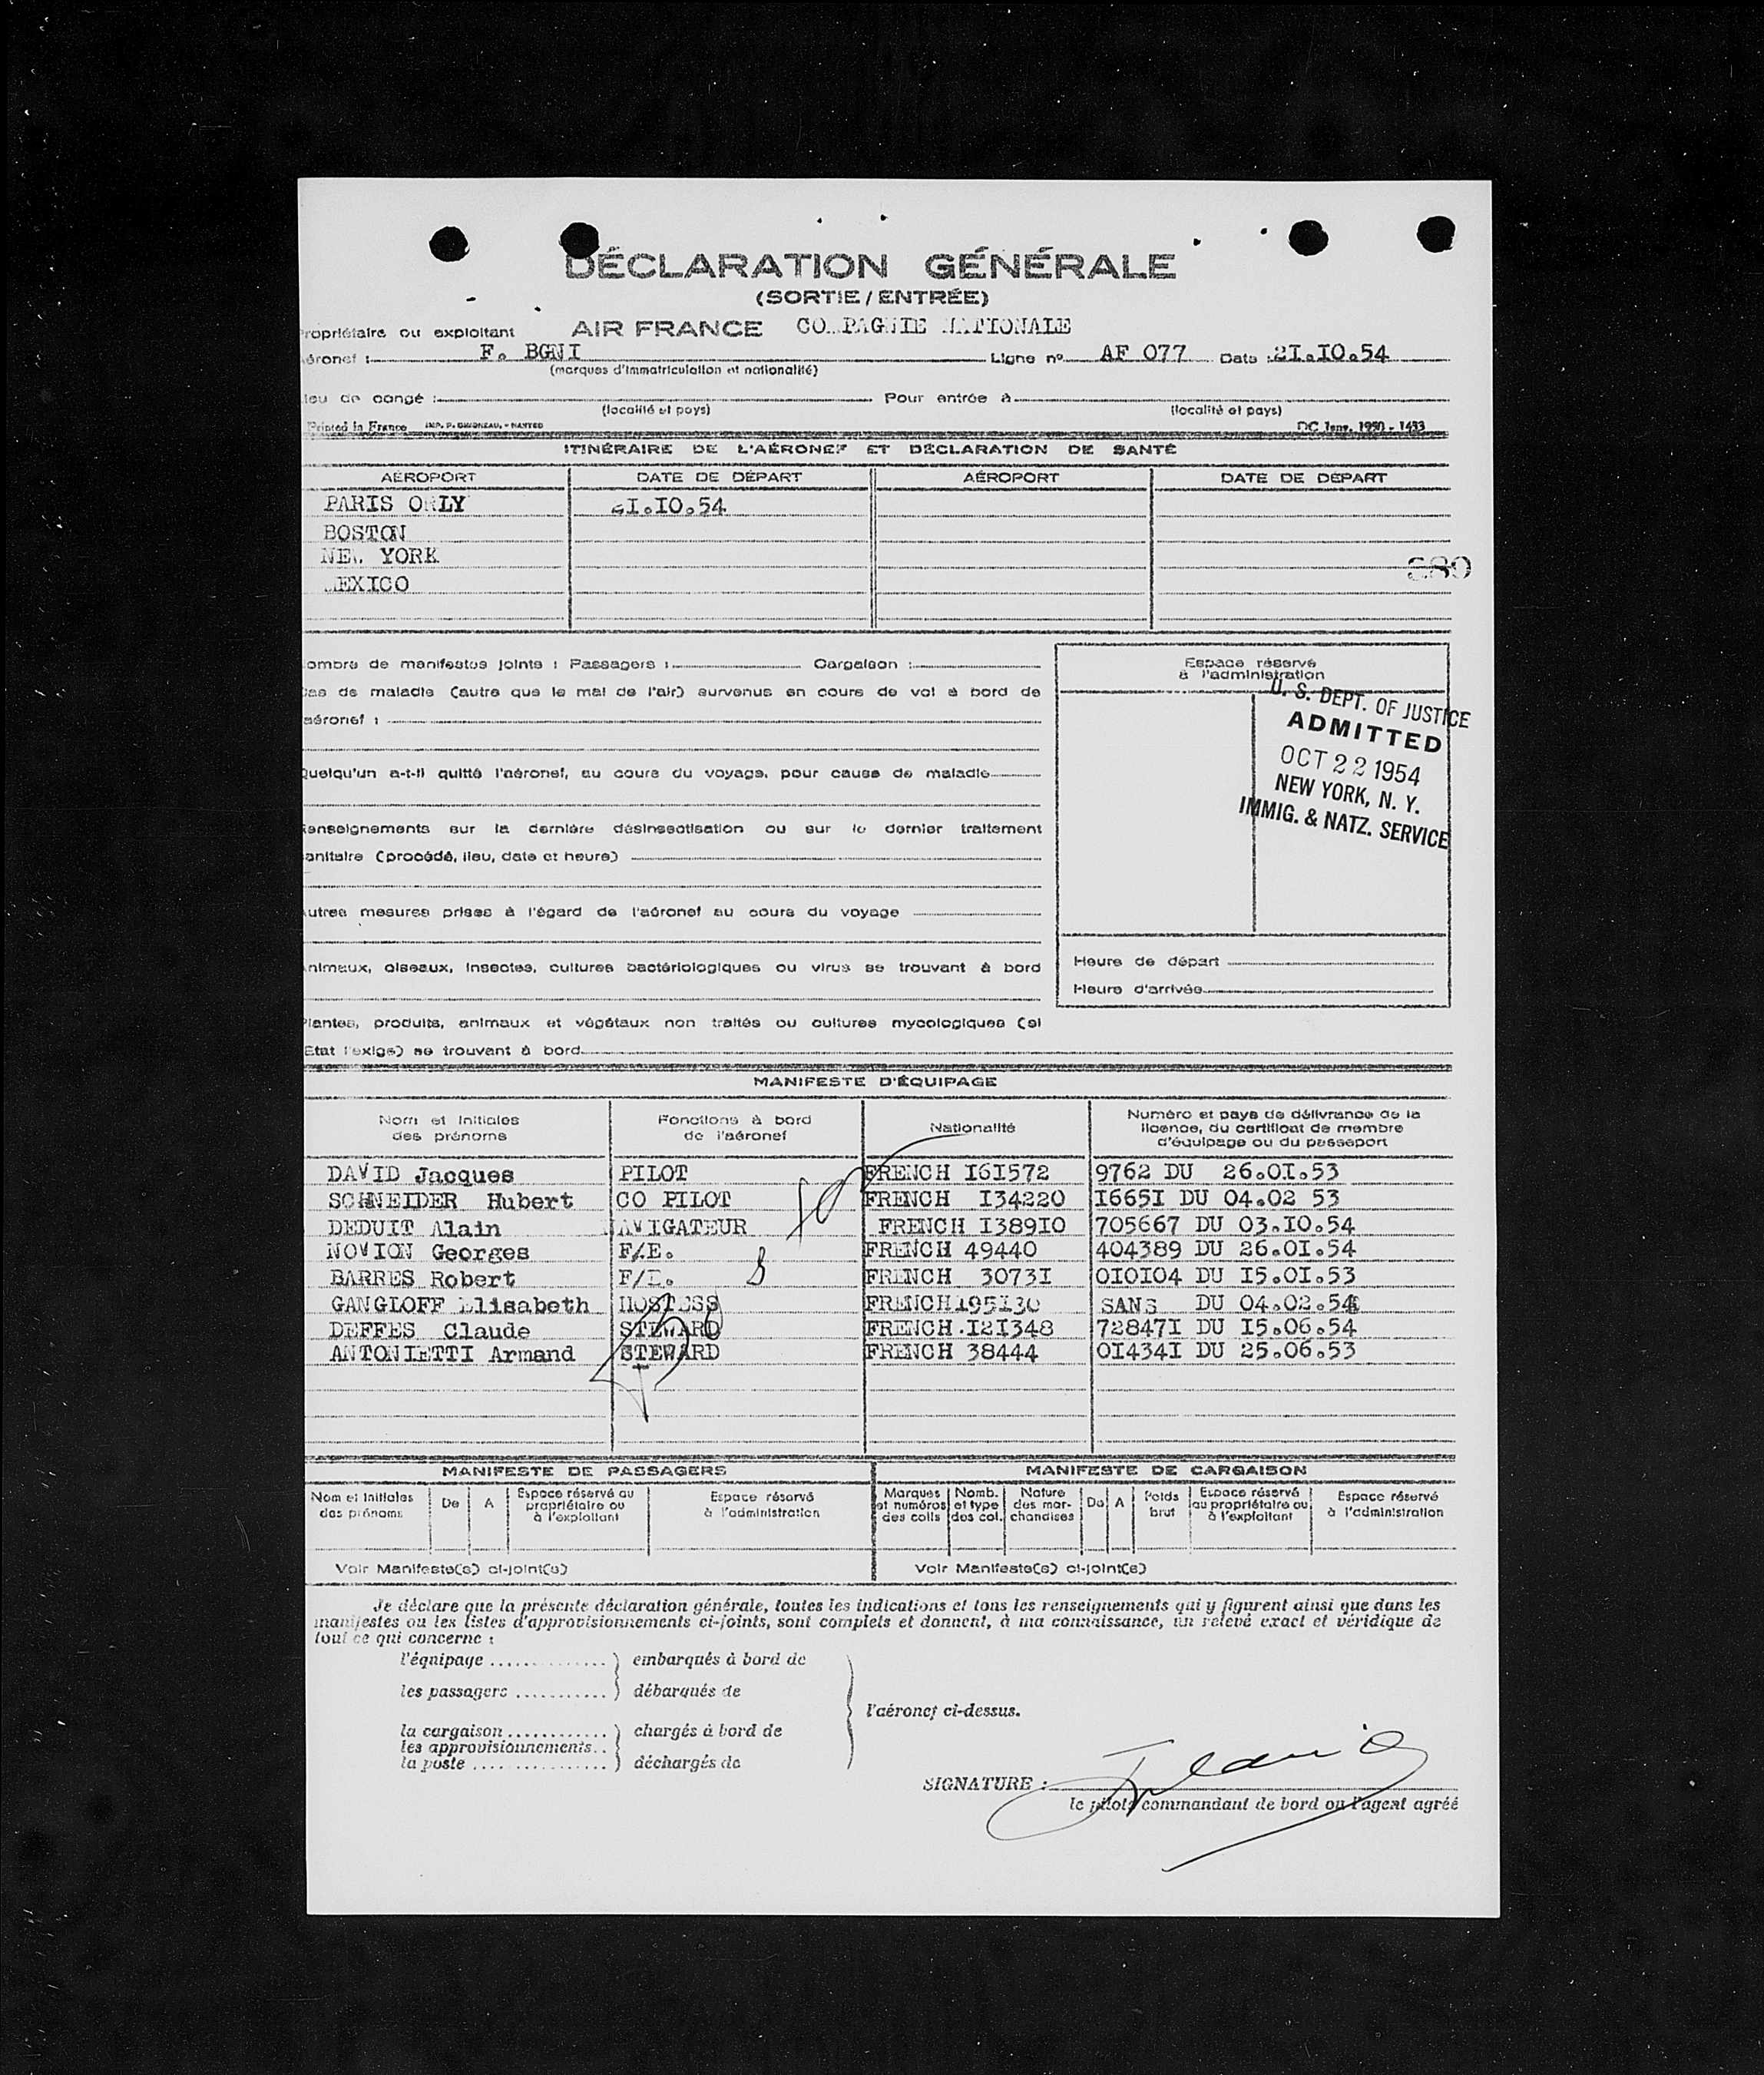 DÉCLARATION GÉNÉRALE
(SORTIE / ENTRÉE)
Propriétaire ou exploitant AIR FRANCE COMPAGNIE NATIONALE
éronef : F. BGNI Ligne nº AF 077 Date 21.IO.54
(marques d'immatriculation et nationalité)
ieu de congé : Pour entrée à
(localité et pays) (localité et pays)
Printed in France DC Janv. 1950 - 1433
ITINÉRAIRE DE L'AÉRONEF ET DÉCLARATION DE SANTÉ
AÉROPORT DATE DE DÉPART AÉROPORT DATE DE DÉPART
PARIS ORLY 21.IO.54
BOSTON
NEW YORK
MEXICO
ombre de manifestes joints : Passagers : Cargaison :
Espace réservé
à l'administration
as de maladie (autre que le mal de l'air) survenus en cours de vol à bord de
aéronef :
U. S. DEPT. OF JUSTICE
ADMITTED
OCT 22 1954
NEW YORK, N. Y.
IMMIG. & NATZ. SERVICE
Quelqu'un a-t-il quitté l'aéronef, au cours du voyage, pour cause de maladie
enseignements sur la dernière désinsectisation ou sur le dernier traitement
anitaire (procédé, lieu, date et heure)
utres mesures prises à l'égard de l'aéronef au cours du voyage
nimaux, oiseaux, insectes, cultures bactériologiques ou virus se trouvant à bord
Heure de départ
Heure d'arrivée
lantes, produits, animaux et végétaux non traités ou cultures mycologiques (si
Etat l'exige) se trouvant à bord
MANIFESTE D'ÉQUIPAGE
Nom et initiales des prénoms Fonctions à bord de l'aéronef Nationalité Numéro et pays de délivrance de la licence, du certificat de membre d'équipage ou du passeport
DAVID Jacques PILOT FRENCH I6I572 9762 DU 26.OI.53
SCHNEIDER Hubert CO PILOT FRENCH I34220 I665I DU 04.02 53
DEDUIT Alain NAVIGATEUR FRENCH I389IO 705667 DU 03.IO.54
NOVION Georges F/E. FRENCH 49440 404389 DU 26.OI.54
BARRES Robert F/E. FRENCH 3073I OIOIO4 DU I5.OI.53
GANGLOFF Elisabeth HOSTESS FRENCH I95I30 SANS DU 04.02.54
DEFFES Claude STEWARD FRENCH.I2I348 72847I DU I5.06.54
ANTONIETTI Armand STEWARD FRENCH 38444 OI434I DU 25.06.53
MANIFESTE DE PASSAGERS MANIFESTE DE CARGAISON
Nom et initiales des prénoms De A Espace réservé au propriétaire ou à l'exploitant Espace réservé à l'administration Marques et numéros des colis Nomb. et type des col. Nature des marchandises De A Poids brut Espace réservé au propriétaire ou à l'exploitant Espace réservé à l'administration
Voir Manifeste(s) ci-joint(s) Voir Manifeste(s) ci-joint(s)
Je déclare que la présente déclaration générale, toutes les indications et tous les renseignements qui y figurent ainsi que dans les
manifestes ou les listes d'approvisionnements ci-joints, sont complets et donnent, à ma connaissance, un relevé exact et véridique de
tout ce qui concerne :
l'équipage .............. ) embarqués à bord de
les passagers ........... ) débarqués de
l'aéronef ci-dessus.
la cargaison ............ ) chargés à bord de
les approvisionnements..
la poste ................ ) déchargés de
SIGNATURE :
le pilote commandant de bord ou l'agent agréé